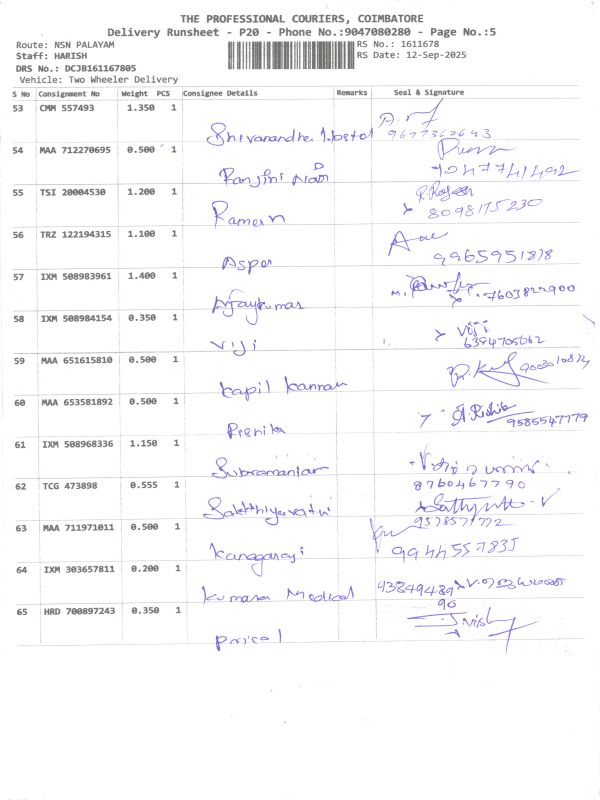 THE PROFESSIONAL COURIERS, COIMBATORE
Delivery Runsheet - P20 - Phone No.:9047080280 - Page No.:5
Route: NSN PALAYAM RS No.: 1611678
Staff: HARISH RS Date: 12-Sep-2025
DRS No.: DCJB161167805
Vehicle: Two Wheeler Delivery
S No Consignment No Weight PCS Consignee Details Remarks Seal & Signature
53 CMM 557493 1.350 1
9677362643
54 MAA 712270695 0.500 1
Ranjini Nair
55 TSI 20004530 1.200 1
Ramesh 8098175230
56 TRZ 122194315 1.100 1
Asper 9965951818
57 IXM 508983961 1.400 1
Ajaykumar 7603822900
58 IXM 508984154 0.350 1 Viji
Viji 6384705062
59 MAA 651615810 0.500 1
Kapil Kannan
60 MAA 653581892 0.500 1
9585547779
61 IXM 508968336 1.150 1
Subramaniar 8760467790
62 TCG 473898 0.555 1
63 MAA 711971011 0.500 1
Kanagaraj 9944557835
64 IXM 303657811 0.200 1
Kumaran Medical 93849489
90
65 HRD 700897243 0.350 1
Pricol